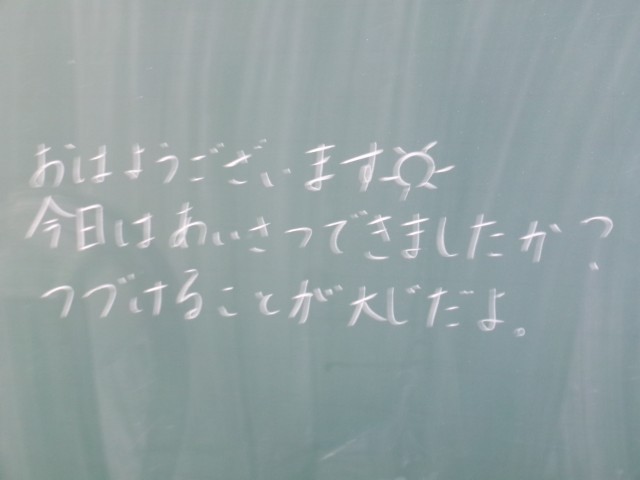 おはようございます☼
今日はあいさつできましたか?
つづけることが大じだよ。